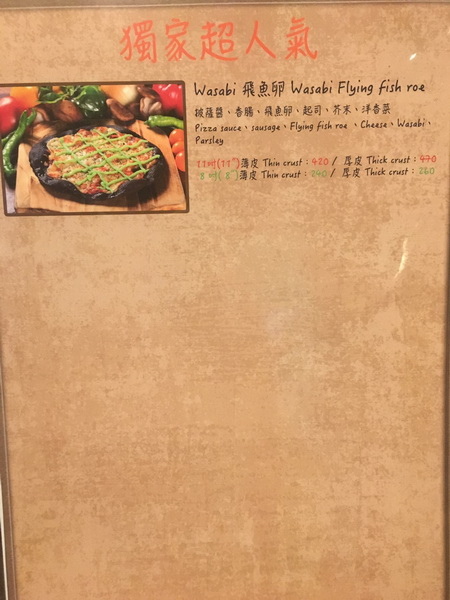 獨家超人氣
Wasabi 飛魚卵 Wasabi Flying fish roe
披薩醬、香腸、飛魚卵、起司、芥末、洋香菜
Pizza sauce、sausage、Flying fish roe、Cheese、Wasabi、
Parsley
11吋(11")薄皮 Thin crust：420 / 厚皮 Thick crust：470
8吋(8")薄皮 Thin crust：240 / 厚皮 Thick crust：260